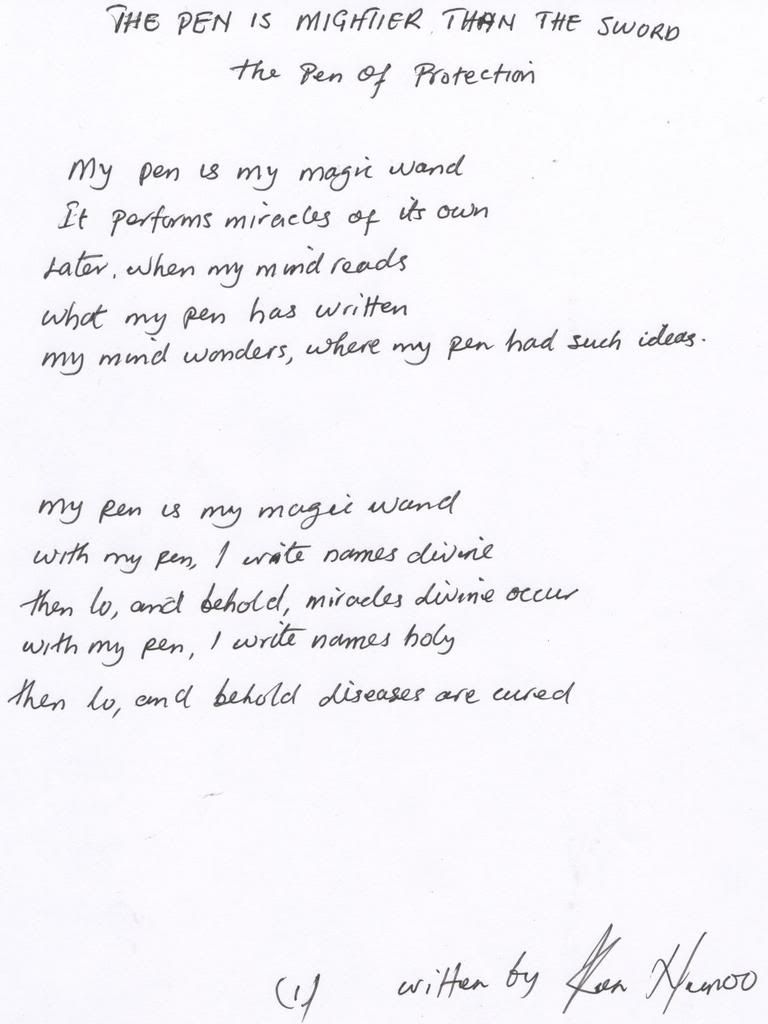 THE PEN IS MIGHTIER THAN THE SWORD
the Pen of Protection
My pen is my magic wand
It performs miracles of its own
Later, when my mind reads
what my pen has written
my mind wonders, where my pen had such ideas.
my pen is my magic wand
with my pen, I write names divine
then lo, and behold, miracles divine occur
with my pen, I write names holy
then lo, and behold diseases are cured
(1) written by Ken